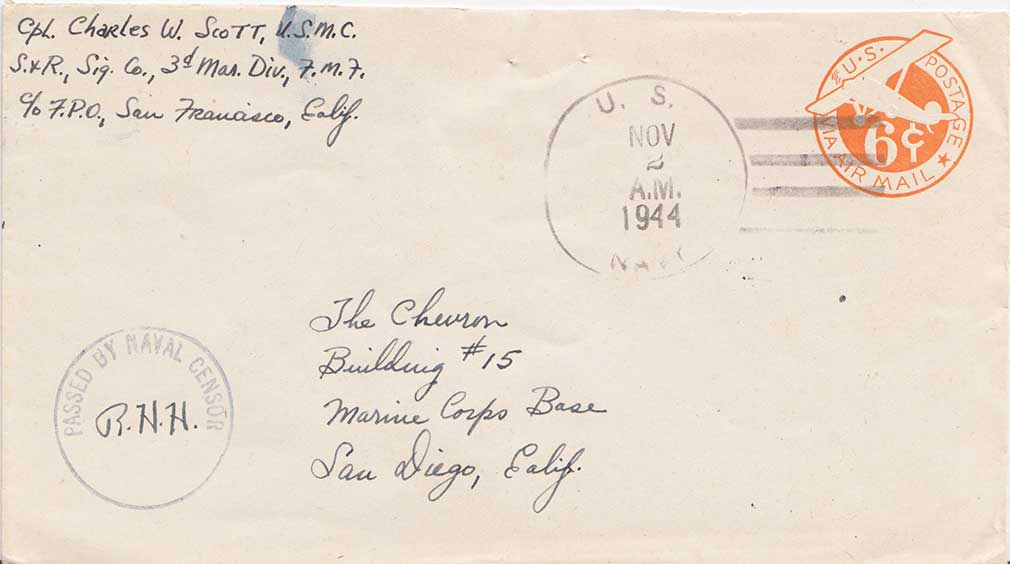 Cpl. Charles W. Scott, U.S.M.C.
S.&R., Sig. Co., 3d Mar. Div., F.M.F.
c/o F.P.O., San Francisco, Calif.
U. S.
NOV
2
A.M.
1944
NAVY
U.S. POSTAGE
6¢
VIA AIR MAIL
The Chevron
Building #15
Marine Corps Base
San Diego, Calif.
PASSED BY NAVAL CENSOR
R.H.H.